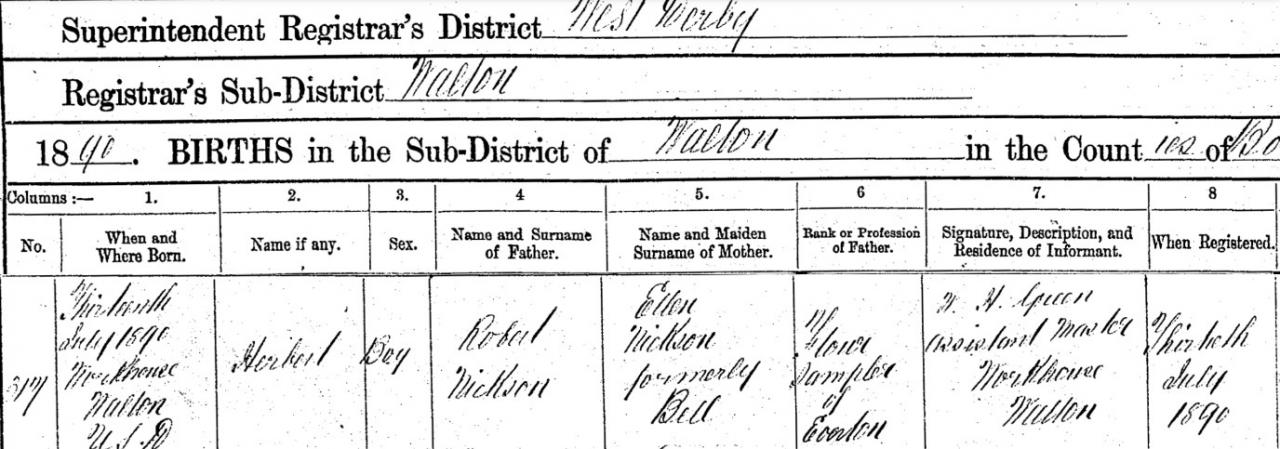 Superintendent Registrar's District West Derby
Registrar's Sub-District Walton
1890. BIRTHS in the Sub-District of Walton in the Counties of Bo
Columns :— 1. 2. 3. 4 5. 6 7. 8
No. When and Where Born. Name if any. Sex. Name and Surname of Father. Name and Maiden Surname of Mother. Rank or Profession of Father. Signature, Description, and Residence of Informant. When Registered.
317
Thirteenth
July 1890
Workhouse
Walton
U.S.D
Herbert
Boy
Robert
Nickson
Ellen
Nickson
formerly
Bell
Flour
Sampler
of
Everton
W. H. Green
Assistant Master
Workhouse
Walton
Thirtieth
July
1890